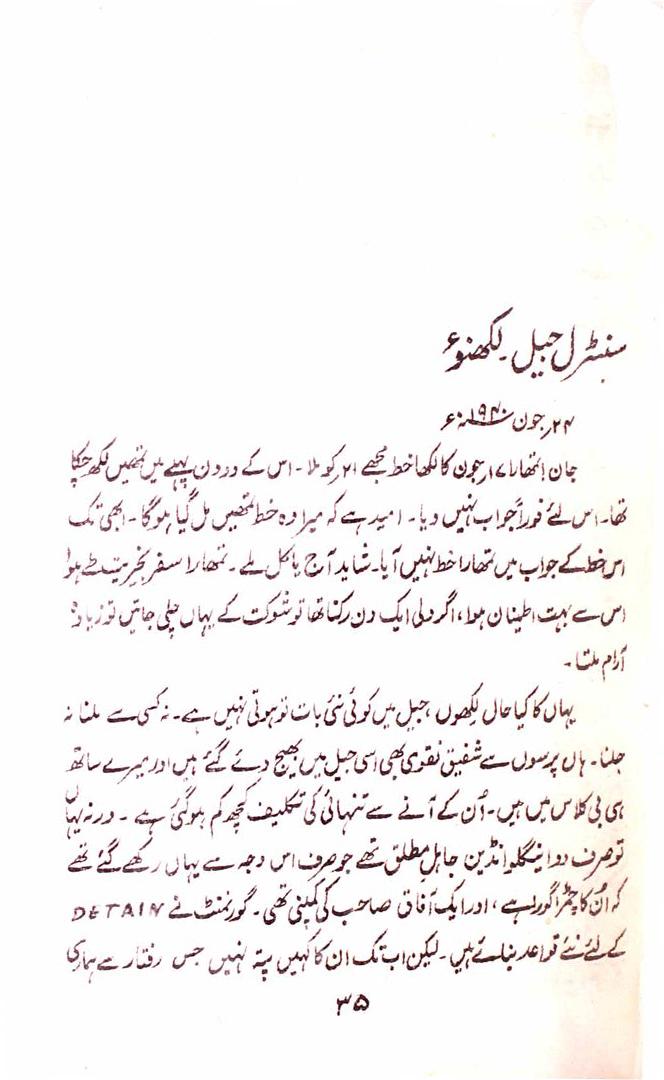 سنٹرل جیل۔ لکھنؤ
۲۴؍جون ۱۹۴۰ء
جان! تمھارا ۱۷؍جون کا لکھا خط مجھے ۲۱؍کو ملا۔ اس کے دو دن پہلے میں تمھیں لکھ چکا
تھا۔ اس لئے فوراً جواب نہیں دیا۔ امید ہے کہ میرا وہ خط تمھیں مل گیا ہوگا۔ ابھی تک
اس خط کے جواب میں تمھارا خط نہیں آیا۔ شاید آج یا کل ملے۔ تمھارا سفر بخیریت طے ہوا
اس سے بہت اطینان ہوا، اگر دلی ایک دن رکنا تھا تو شوکت کے یہاں چلی جاتیں تو زیادہ
آرام ملتا۔
یہاں کا کیا حال لکھوں، جیل میں کوئی نئی بات تو ہوتی نہیں ہے۔ نہ کسی سے ملنا نہ
جلنا۔ ہاں پرسوں سے شفیق نقوی بھی اسی جیل میں بھیج دئے گئے ہیں اور میرے ساتھ
ہی بی کلاس میں ہیں۔ اُن کے آنے سے تنہائی کی تکلیف کچھ کم ہوگئی ہے۔ ورنہ یہاں
تو صرف دو اینگلو انڈین جاہلِ مطلق تھے جو صرف اس وجہ سے یہاں رکھے گئے تھے
کہ اُن کا چمڑا گورا ہے، اور ایک آفاق صاحب کی کمپنی تھی۔ گورنمنٹ نے DETAIN
کے لئے نئے قواعد بنائے ہیں۔ لیکن اب تک ان کا کہیں پتہ نہیں جس رفتار سے ہماری
۳۵